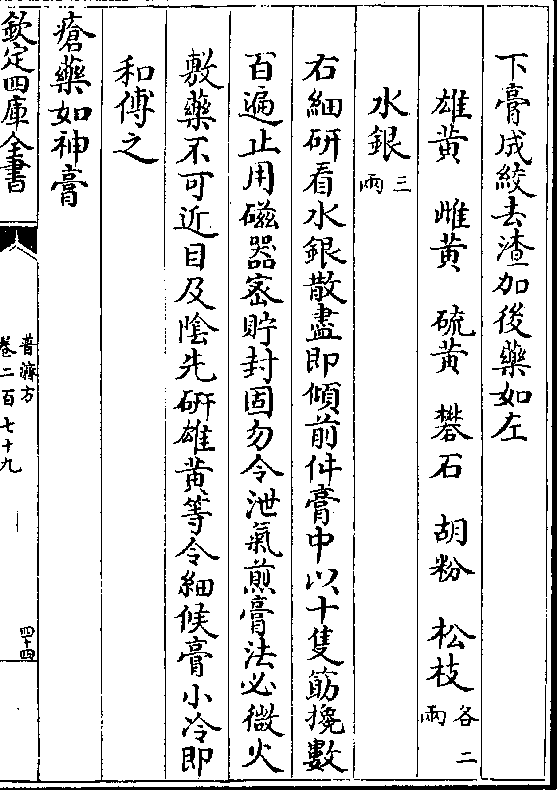 下膏成絞去渣加後藥如左
雄黄　雌黄　硫黄　礬石　胡粉　松枝各二兩
水銀三兩
右細研看水銀散盡即傾前件膏中以十隻筯攪數
百遍止用磁器密貯封固勿令泄氣煎膏法必微火
敷藥不可近目及陰先研雄黄等令細候膏小冷即
和傅之
瘡藥如神膏
欽定四庫全書
普濟方
卷二百七十九
四十四